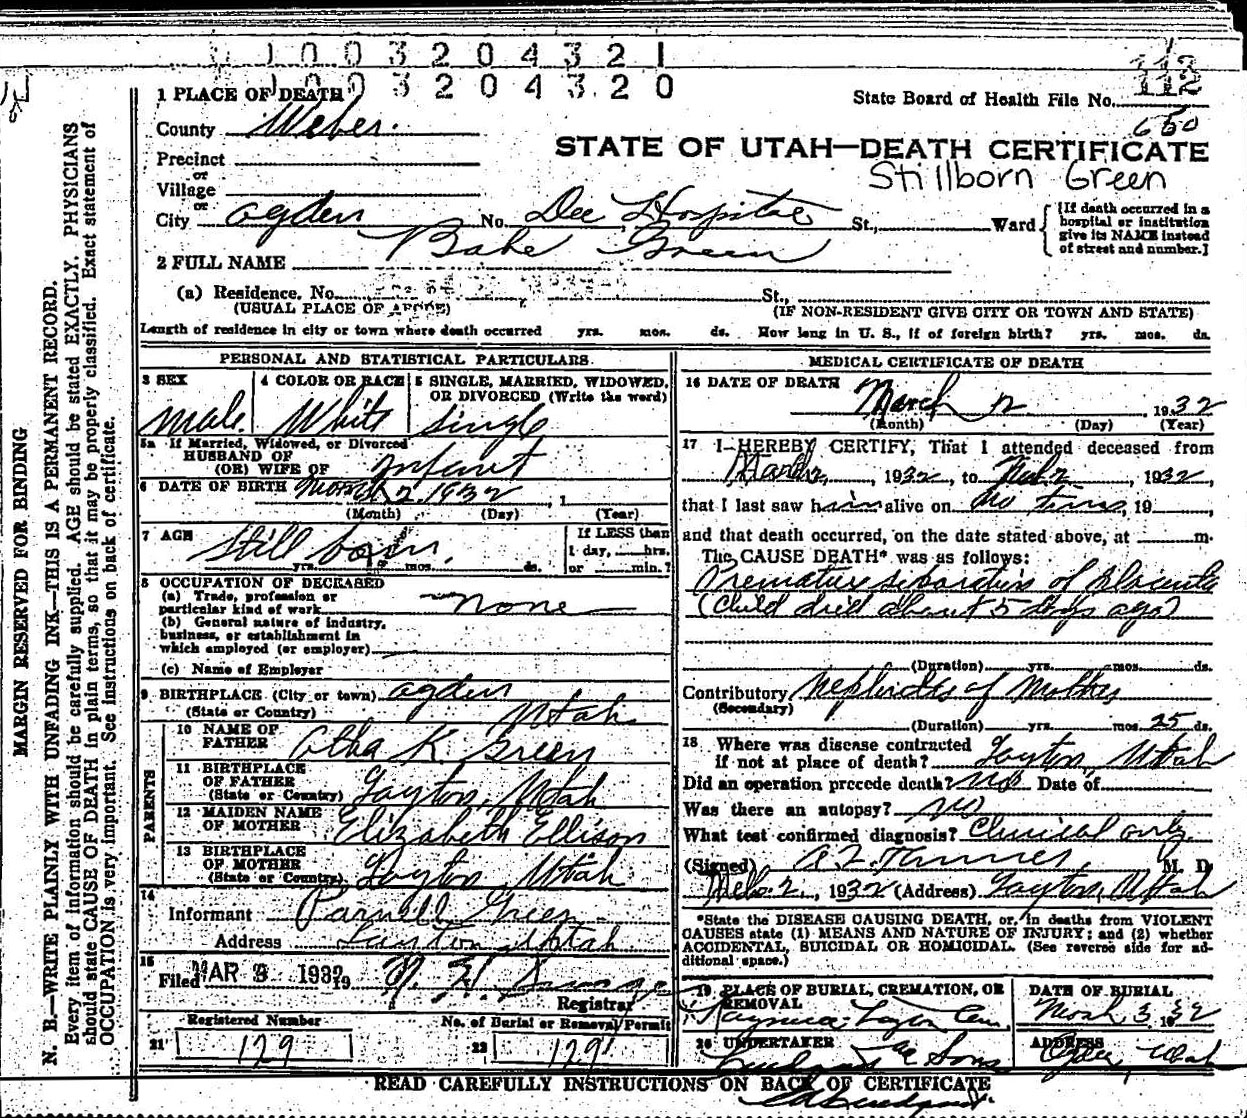 1 0 0 3 2 0 4 3 2 1
1 0 0 3 2 0 4 3 2 0
113
112
1 PLACE OF DEATH
State Board of Health File No.
650
County Weber.
STATE OF UTAH—DEATH CERTIFICATE
Precinct
or
Stillborn Green
Village
or
City Ogden No. Dee Hospital St., Ward
[If death occurred in a
hospital or institution
give its NAME instead
of street and number.]
2 FULL NAME Babe Green
(a) Residence. No. St.,
(USUAL PLACE OF ABODE) (IF NON-RESIDENT GIVE CITY OR TOWN AND STATE)
Length of residence in city or town where death occurred yrs. mos. ds. How long in U. S., if of foreign birth? yrs. mos. ds.
MARGIN RESERVED FOR BINDING
N. B.—WRITE PLAINLY WITH UNFADING INK—THIS IS A PERMANENT RECORD.
Every item of information should be carefully supplied. AGE should be stated EXACTLY. PHYSICIANS
should state CAUSE OF DEATH in plain terms, so that it may be properly classified. Exact statement of
OCCUPATION is very important. See instructions on back of certificate.
PERSONAL AND STATISTICAL PARTICULARS.
3 SEX
Male
4 COLOR OR RACE
White
5 SINGLE, MARRIED, WIDOWED,
OR DIVORCED (Write the word)
Single
5a If Married, Widowed, or Divorced
HUSBAND OF
(OR) WIFE OF Infant
6 DATE OF BIRTH March 2 1932, 1
(Month) (Day) (Year)
7 AGE Still born.
yrs. mos. ds.
If LESS than
1 day, hrs.
or min.?
8 OCCUPATION OF DECEASED
(a) Trade, profession or
particular kind of work none
(b) General nature of industry,
business, or establishment in
which employed (or employer)
(c) Name of Employer
9 BIRTHPLACE (City or town) Ogden
(State or Country) Utah
PARENTS
10 NAME OF
FATHER Otha K. Green
11 BIRTHPLACE
OF FATHER
(State or Country) Layton, Utah
12 MAIDEN NAME
OF MOTHER Elizabeth Ellison
13 BIRTHPLACE
OF MOTHER
(State or Country) Layton Utah
14
Informant Parnell Green
Address Layton Utah
15
Filed MAR 3 1932 19
Registrar
Registered Number
21 129
No. of Burial or Removal Permit
22 129
MEDICAL CERTIFICATE OF DEATH
16 DATE OF DEATH
March 2, 1932
(Month) (Day) (Year)
17 I HEREBY CERTIFY, That I attended deceased from
March 2, 1932, to Mch 2, 1932,
that I last saw him alive on no time, 19 ,
and that death occurred, on the date stated above, at m.
The CAUSE DEATH* was as follows:
Premature separation of placenta
(Child died about 5 days ago)
(Duration) yrs. mos. ds.
Contributory Nephritis of Mother
(Secondary)
(Duration) yrs. mos. 25 ds.
18 Where was disease contracted
if not at place of death? Layton, Utah
Did an operation precede death? No Date of
Was there an autopsy? no
What test confirmed diagnosis? Clinical only.
(Signed) A Z Tanner, M. D.
Mch 2, 1932 (Address) Layton, Utah
*State the DISEASE CAUSING DEATH, or, in deaths from VIOLENT
CAUSES state (1) MEANS AND NATURE OF INJURY; and (2) whether
ACCIDENTAL, SUICIDAL OR HOMICIDAL. (See reverse side for ad-
ditional space.)
19 PLACE OF BURIAL, CREMATION, OR
REMOVAL
Kaysville-Layton Cem.
DATE OF BURIAL
Mch 3, 1932
20 UNDERTAKER
& Sons
ADDRESS
Ogden, Utah
READ CAREFULLY INSTRUCTIONS ON BACK OF CERTIFICATE